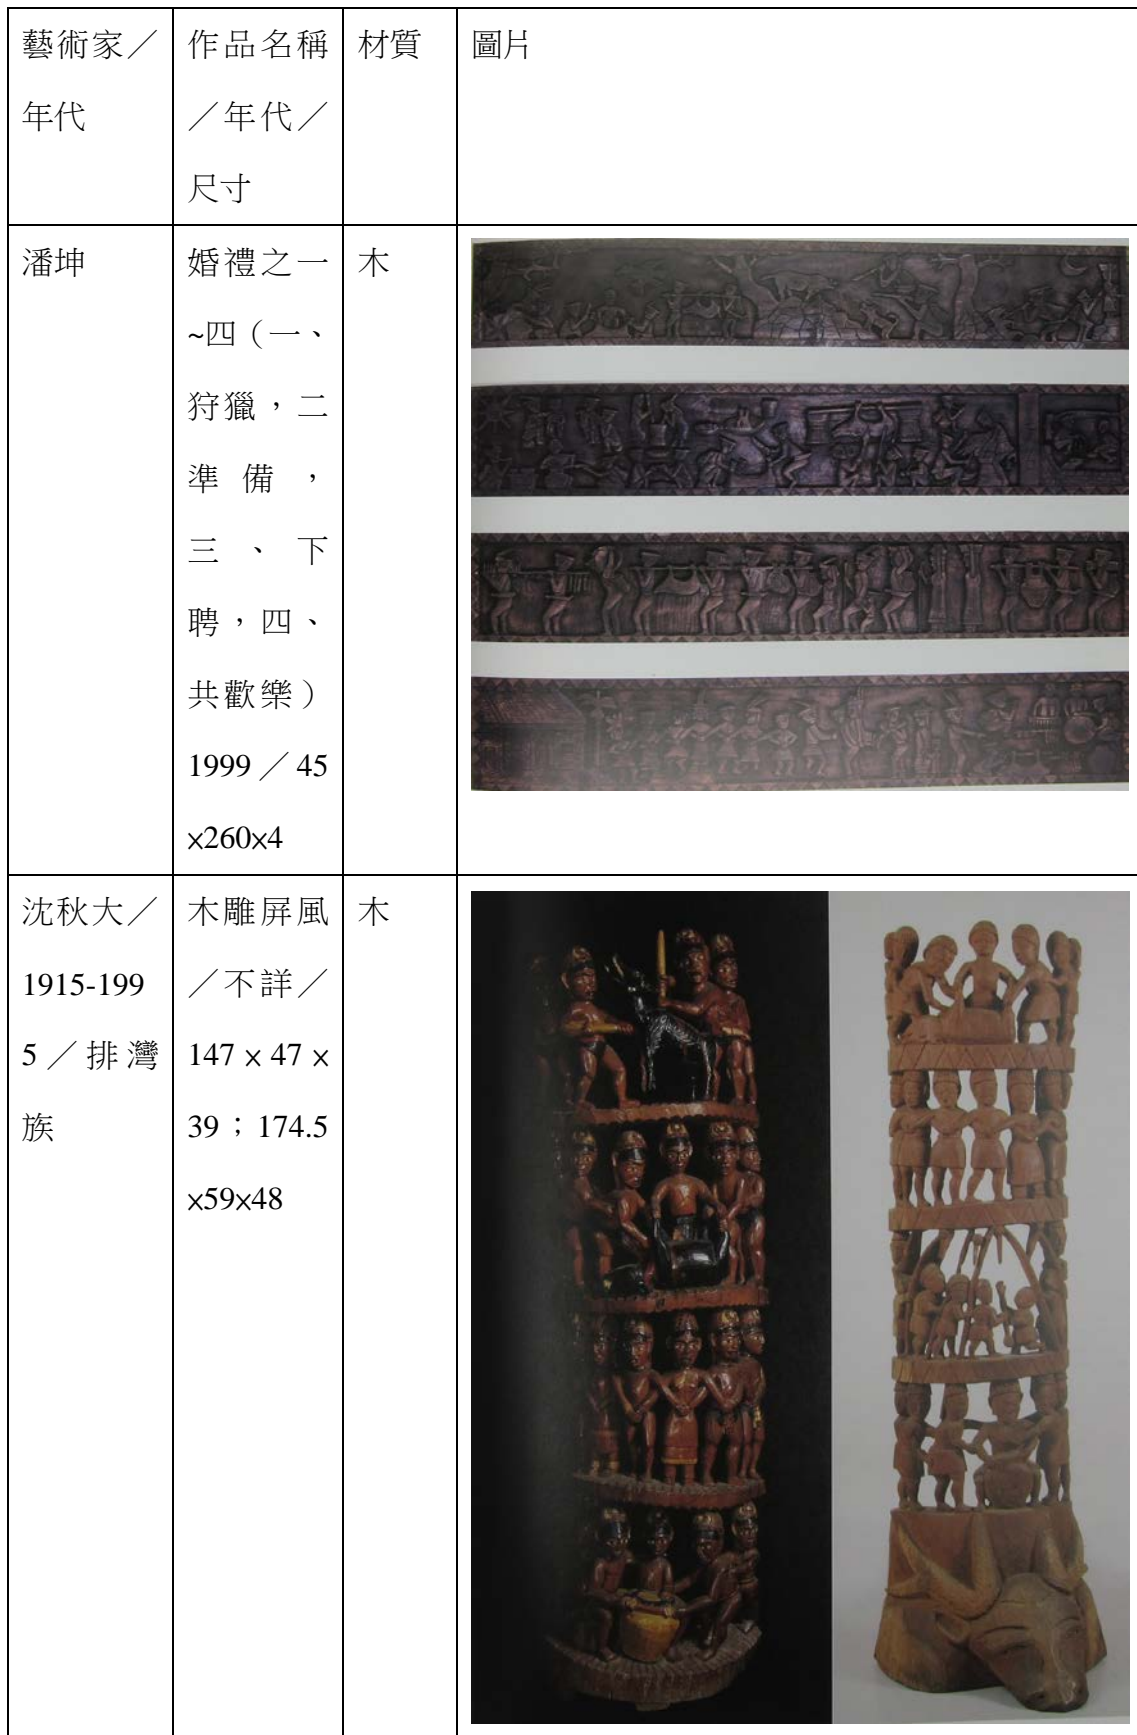 藝術家／
年代
作品名稱
／年代／
尺寸
材質
圖片
潘坤
婚禮之一
~四（一、
狩獵，二
準備，
三、下
聘，四、
共歡樂）
1999／45
×260×4
木
沈秋大／
1915-199
5／排灣
族
木雕屏風
／不詳／
147×47×
39；174.5
×59×48
木